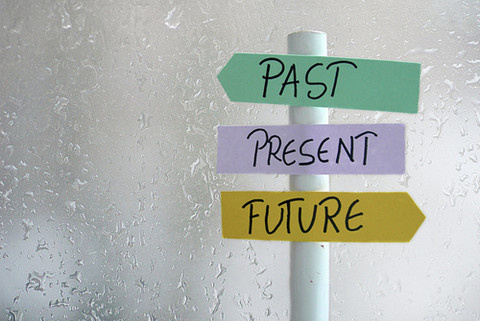 PAST
PRESENT
FUTURE